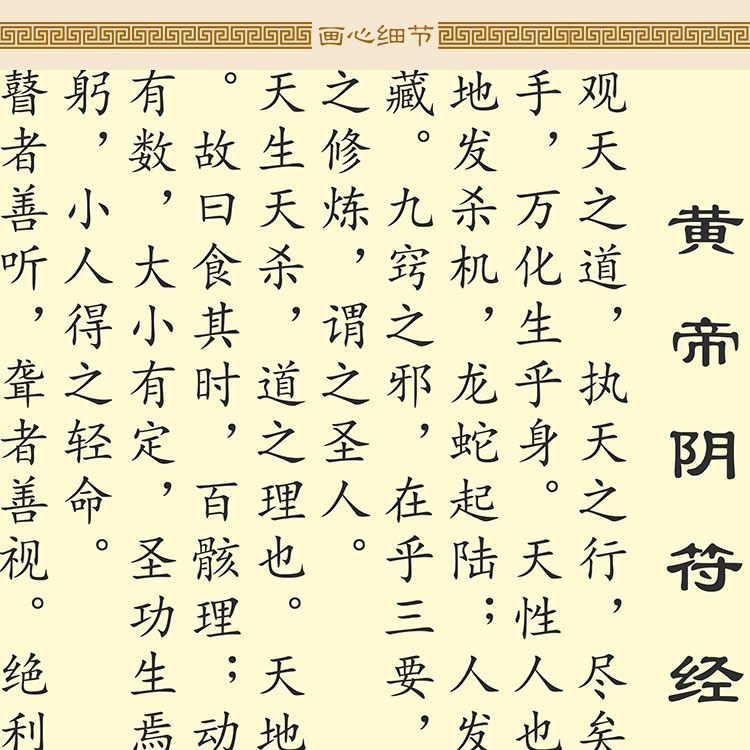 画心细节
黄帝阴符经
观天之道，执天之行，尽矣
手，万化生乎身。天性人也
地发杀机，龙蛇起陆；人发
藏。九窍之邪，在乎三要，
之修炼，谓之圣人。
天生天杀，道之理也。天地
。故曰食其时，百骸理；动
有数，大小有定，圣功生焉
躬，小人得之轻命。
瞽者善听，聋者善视。绝利